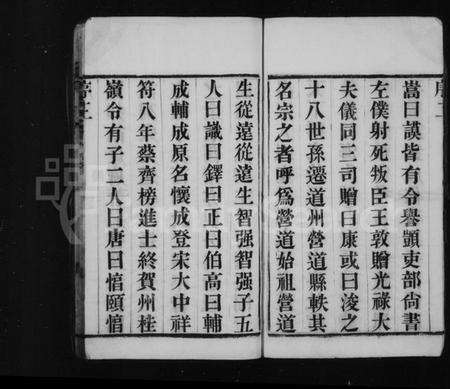 嵩曰謨皆有令譽顗吏部尙書
左僕射死叛臣王敦贈光祿大
夫儀同三司贈曰康或曰淩之
十八世孫遷道州營道縣軼其
名宗之者呼爲營道始祖營道
生從遠從遠生智强智强子五
人曰識曰鐸曰正曰伯高曰輔
成輔成原名懷成登宋大中祥
符八年蔡齊榜進士終賀州桂
嶺令有子二人曰唐曰惇頤惇